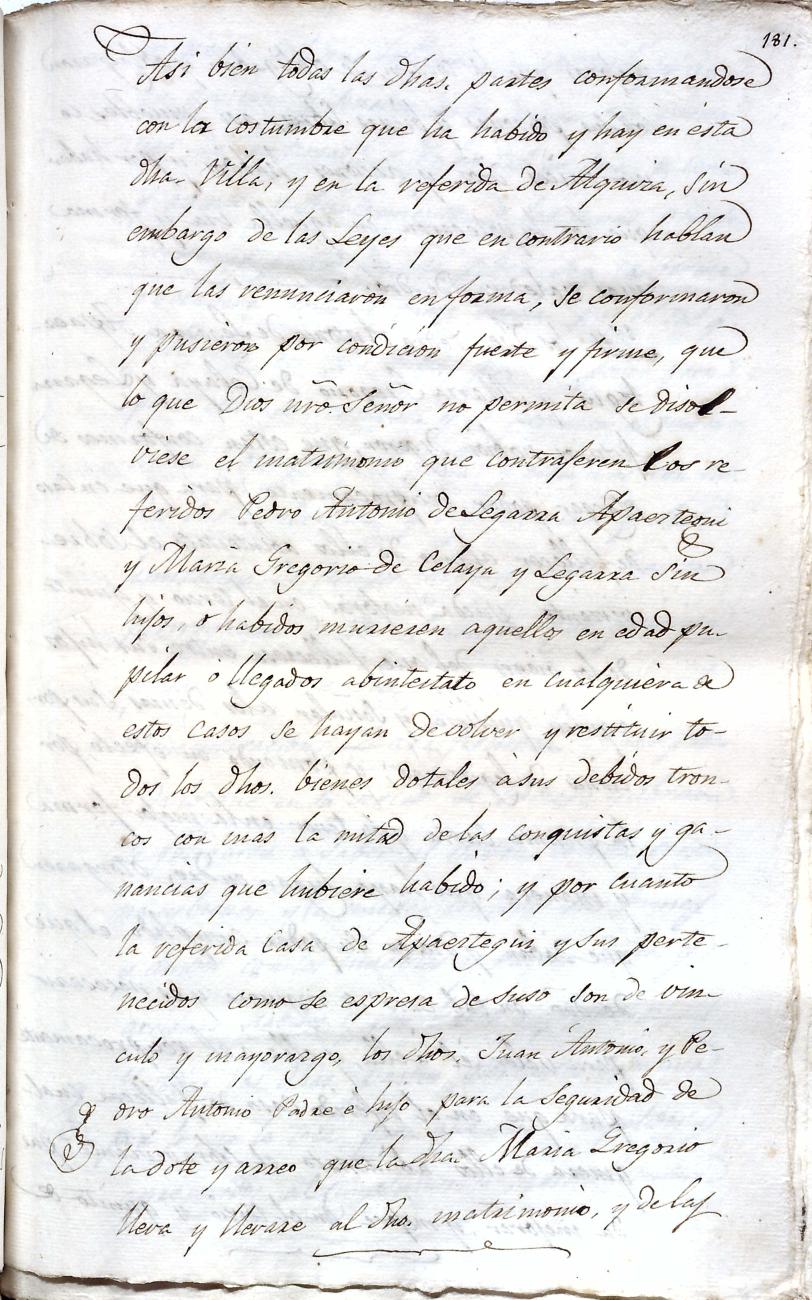 181.
Asi bien todas las dhas. partes conformandose
con la costumbre que ha habido y hay en esta
dha. Villa, y en la referida de Alquiza, sin
embargo de las Leyes que en contrario hablan
que las renunciaron en forma, se conformaron
y pusieron por condicion fuerte y firme, que
lo que Dios nr̃o. Señor no permita se disol-
viese el matrimonio que contraferen los re-
feridos Pedro Antonio de Legarra Apaeztegui
y Maria Gregorio de Celaya y Legarra sin
hijos, ò habidos murieren aquellos en edad pu-
pilar ò llegados abintestato en cualquiera de
estos casos se hayan de volver y restituir to-
dos los dhos. bienes dotales à sus debidos tron-
cos con mas la mitad de las conquistas y ga-
nancias que hubiere habido; y por cuanto
la referida Casa de Apaeztegui y sus perte-
necidos como se espresa de suso son de vin-
culo y mayorazgo, los dhos. Juan Antonio, y Pe-
dro Antonio Padre è hijo para la seguridad de
la dote y arreo que la dha. Maria Gregorio
lleva y llevare al dho. matrimonio, y de las